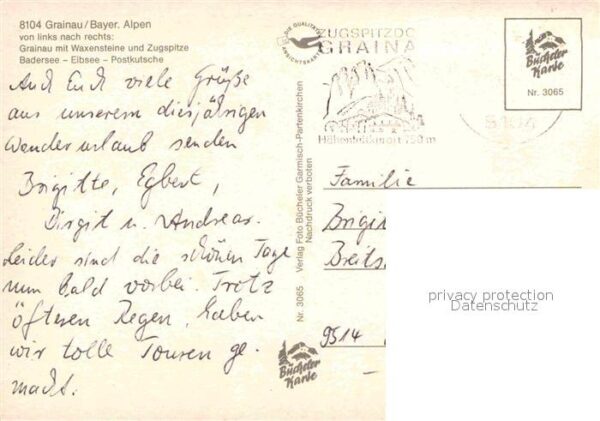 8104 Grainau/Bayer. Alpen
von links nach rechts:
Grainau mit Waxensteine und Zugspitze
Badersee – Eibsee – Postkutsche
Auch Euch viele Grüße
aus unserem diesjährigen
Wanderurlaub senden
Brigitte, Egbert,
Birgit u. Andreas.
Leider sind die schönen Tage
nun bald vorbei. Trotz
öfteren Regen, haben
wir tolle Touren ge-
macht.
Nr. 3065 Verlag Foto Bücheler Garmisch-Partenkirchen
Nachdruck verboten
Bücheler
Karte
DIE QUALITÄTS
ANSICHTSKARTE
ZUGSPITZDO
GRAINA
Höhenluftkurort 750 m
8104
Bücheler
Karte
Nr. 3065
Familie
Brigi
Breits
9514
privacy protection
Datenschutz